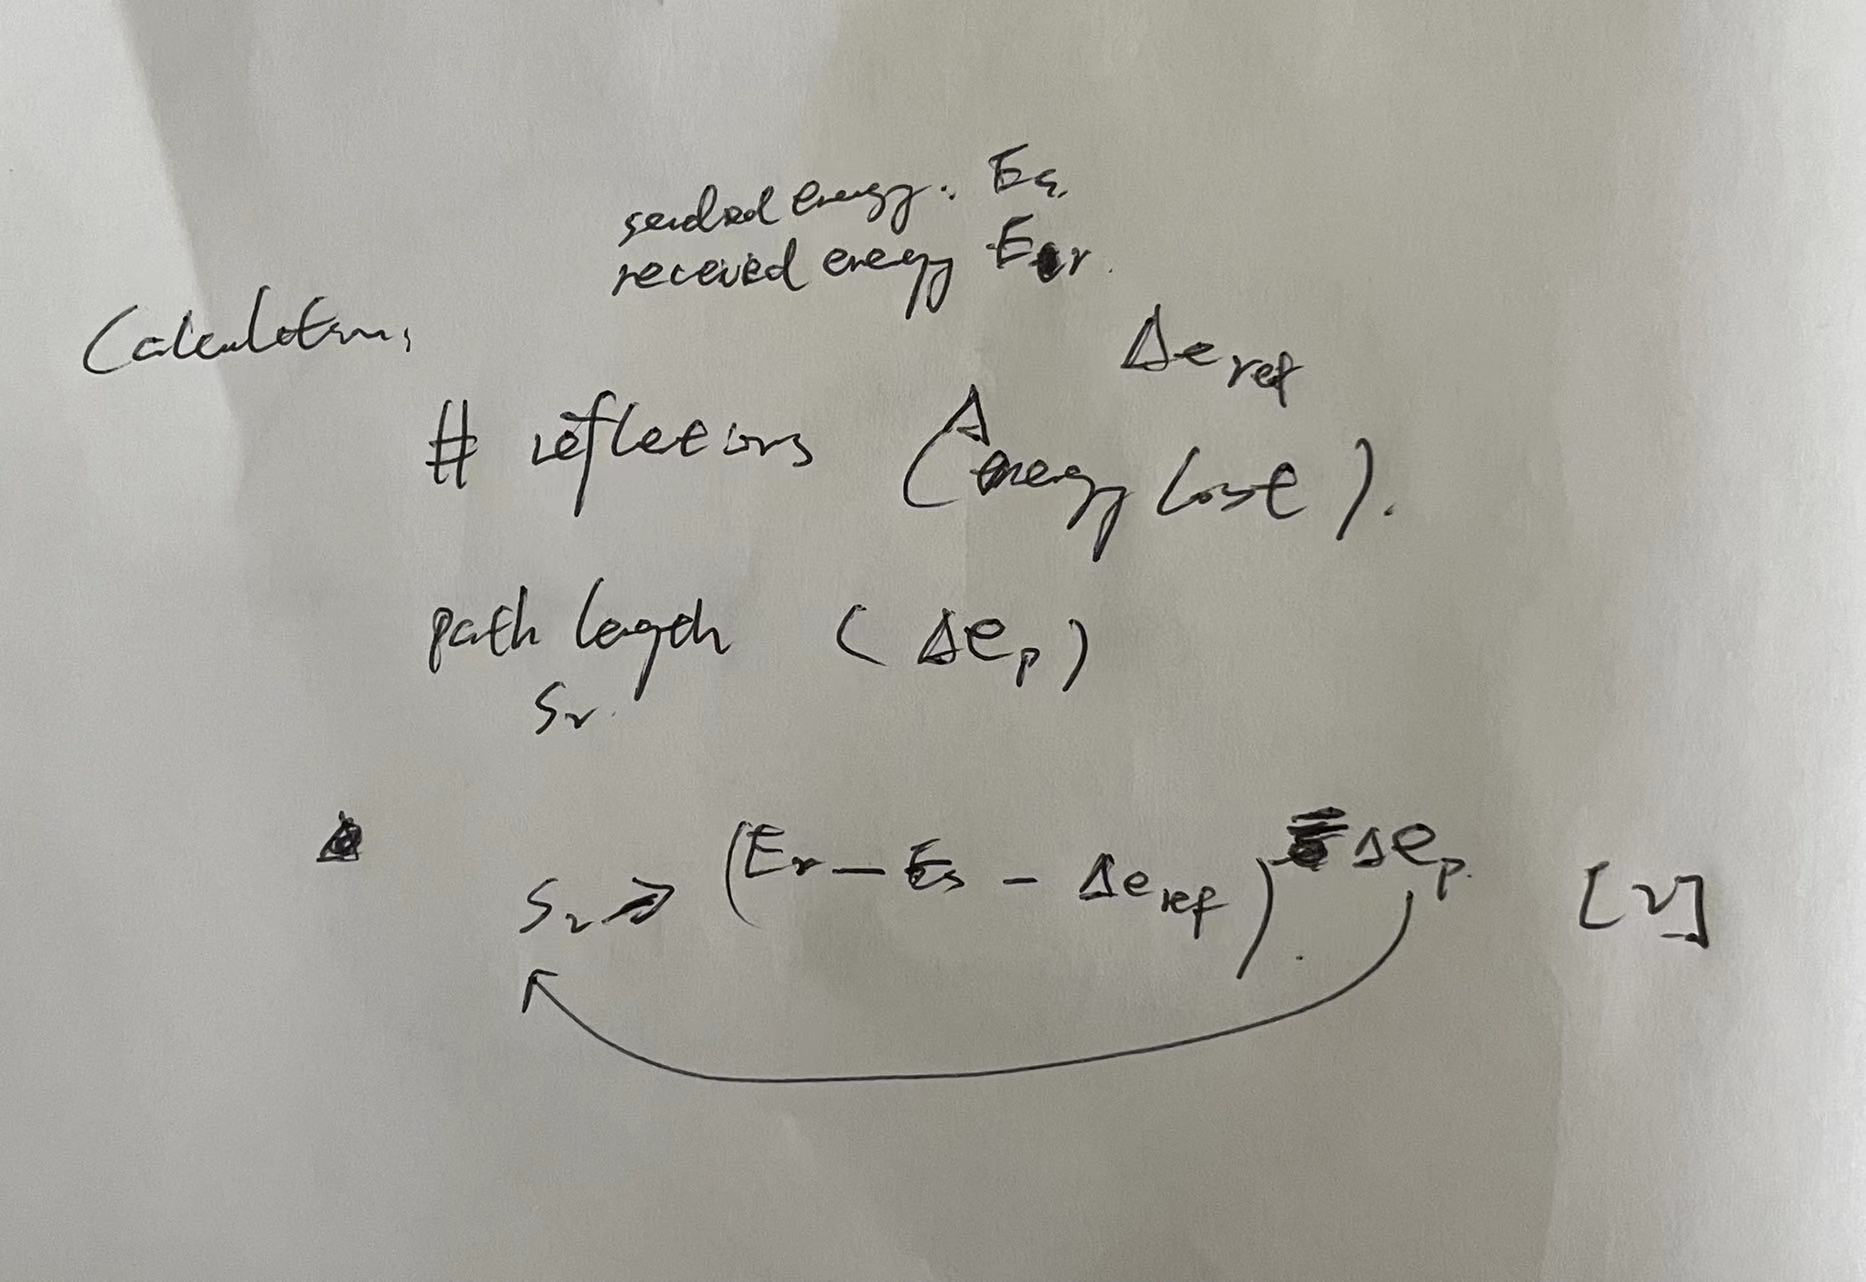 sended energy: Es.
received energy Er.
Calculation:
Δe ref
# reflections (Δ energy lost).
path length (Δe p)
Sr.
Sr ⇒ (Er - Es - Δe ref) = Δe p. [2]